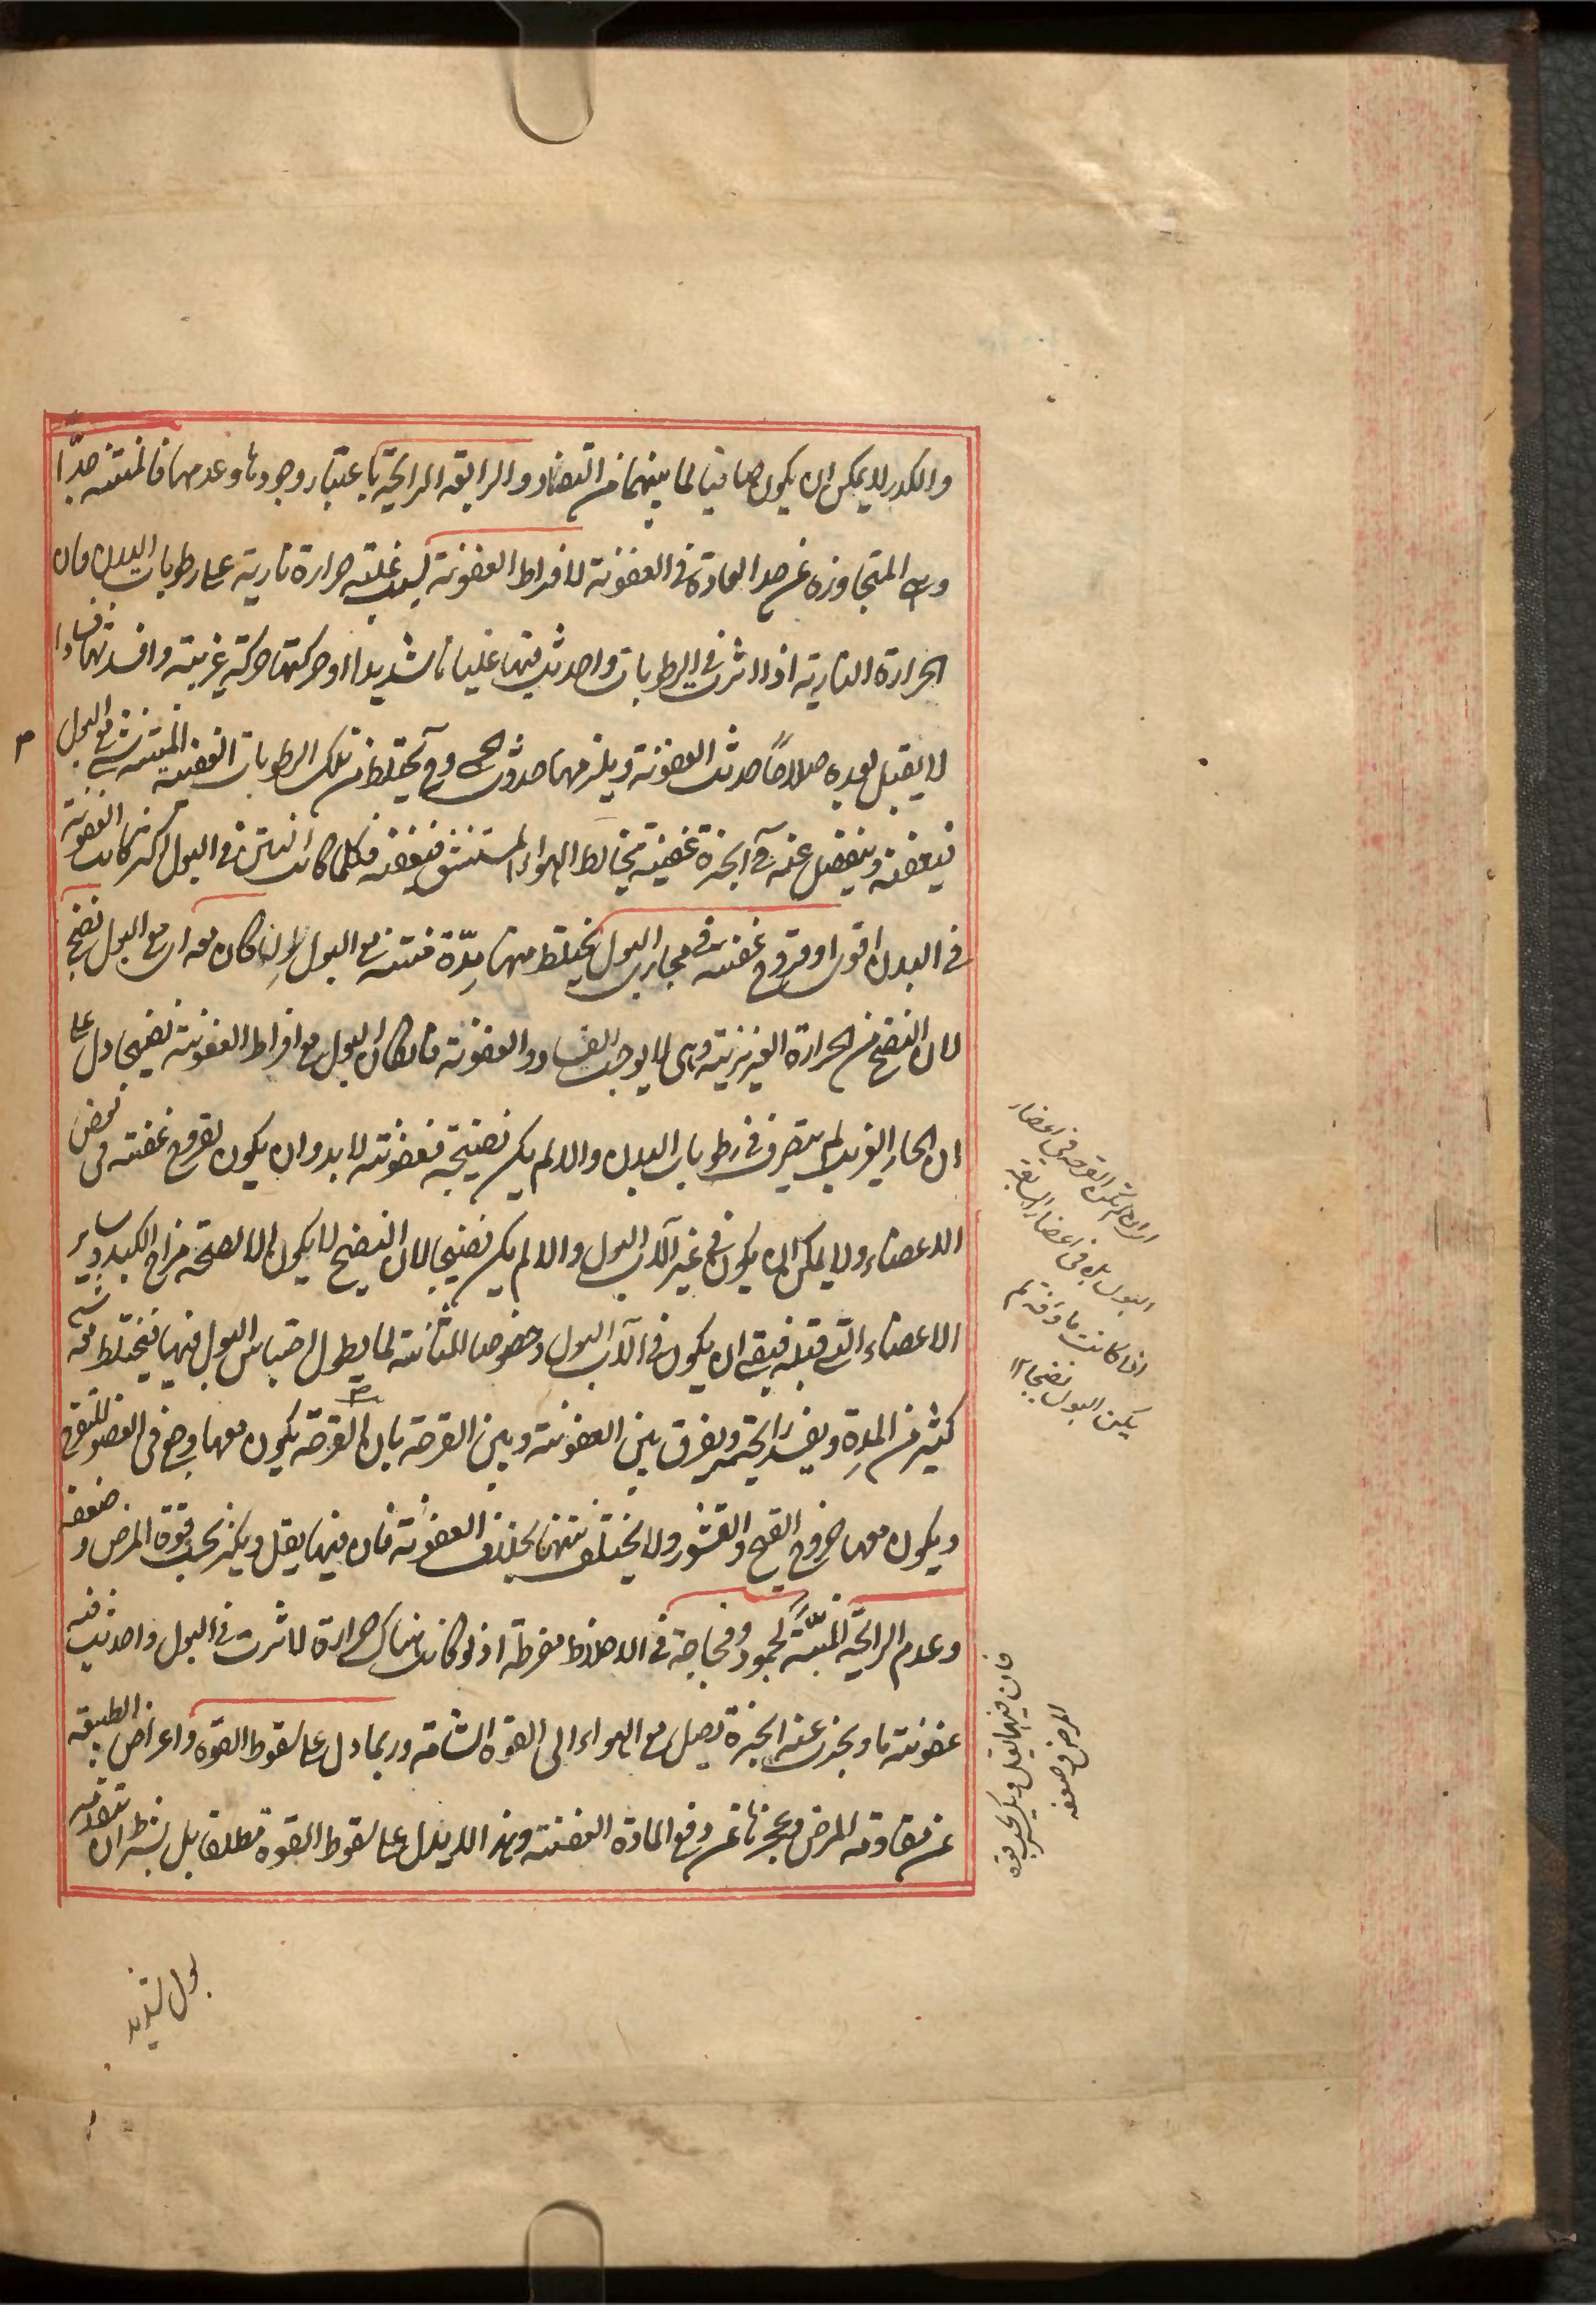 والكدر لا يمكن ان يكون صافيا لما بينهما من التضاد والرابعة الرايحة باعتبار وجودها وعدمها فالمنتنة جدّا
وهى المتجاوزة عن حد العادة فى العفونة لافراط العفونة بسبب غلبة حرارة نارية على رطوبات البدن فان
الحرارة النارية اذا اثرت فى الرطوبات واحدثت فيها غليانا شديدا او حركتها حركة غريبة وافسدتها فسادا
لا يقبل بعده صلاحًا حدثت العفونة ويلزمها حدوث الحمى وح يختلط من تلك الرطوبات العفنة المنتنة شى مع البول
فيعفنه وينفصل عنه ح ابخرة عفنة تخالط الهواء المستنشق فيعفنه فكلما كانت النتن فى البول اكثر كانت العفونة
فى البدن اقوى او قروح عفنة فى مجارى البول يختلط منها مِدّة منتنة مع البول ان كان معه اى مع البول نضج
لان النضج من الحرارة الغريزية وهى لا يوجب الفساد والعفونة فان كان البول مع افراط العفونة نضيجا دل على
ان الحار الغريب لم يتصرف فى رطوبات البدن والا لم يكن نضيجة فعفونته لا بد وان يكون لقروح عفنة فى بعض
الاعضاء ولا يمكن ان يكون فى غير آلات البول والا لم يكن نضيجا لان النضج لا يكون الا لصحة مزاج الكبد وساير
الاعضاء التى قبله فبقى ان يكون فى آلات البول وخصوصا للمثانة لما يطول احتباس البول فيها فيختلط معه شى
كثير من المِدة ويفسد رايحته ويفرق بين العفونة وبين القرحة بان القرحة يكون معها وجع فى العضو المتقرح
ويكون معها خروج القيح والقشور ولا يختلف نتنها بخلاف العفونة فان فيها يقل ويكثر بحسب قوة المرض وضعفه
وعدم الرايحة البتّة لجمود وفجاجة فى الاخلاط مفرطة اذ لو كانت هناك حرارة لاثرت فى البول واحدثت فيه
عفونة ما وبخرت عنه ابخرة تصل مع الهواء الى القوة الشامة وربما دل على سقوط القوة واعراض الطبيعة
عن مقاومة المرض وعجزها عن دفع المادة العفنة وهذا لا يدل على سقوط القوة مطلقا بل بشرط ان تتقدمه
اى ان لم تكن القرحة فى اعضاء
البول بل فى اعضاء السابقة
اذا كانت ماوفة لم
يكن البول نضيجا ١٢
فان فيها يقل ويكثر بحسب قوة
المرض وضعفه
بول شديد